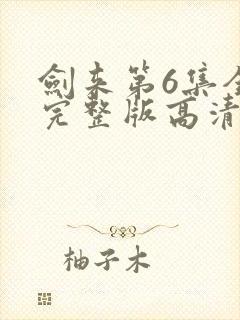 劍来第6集全
完整版高清
柚子木